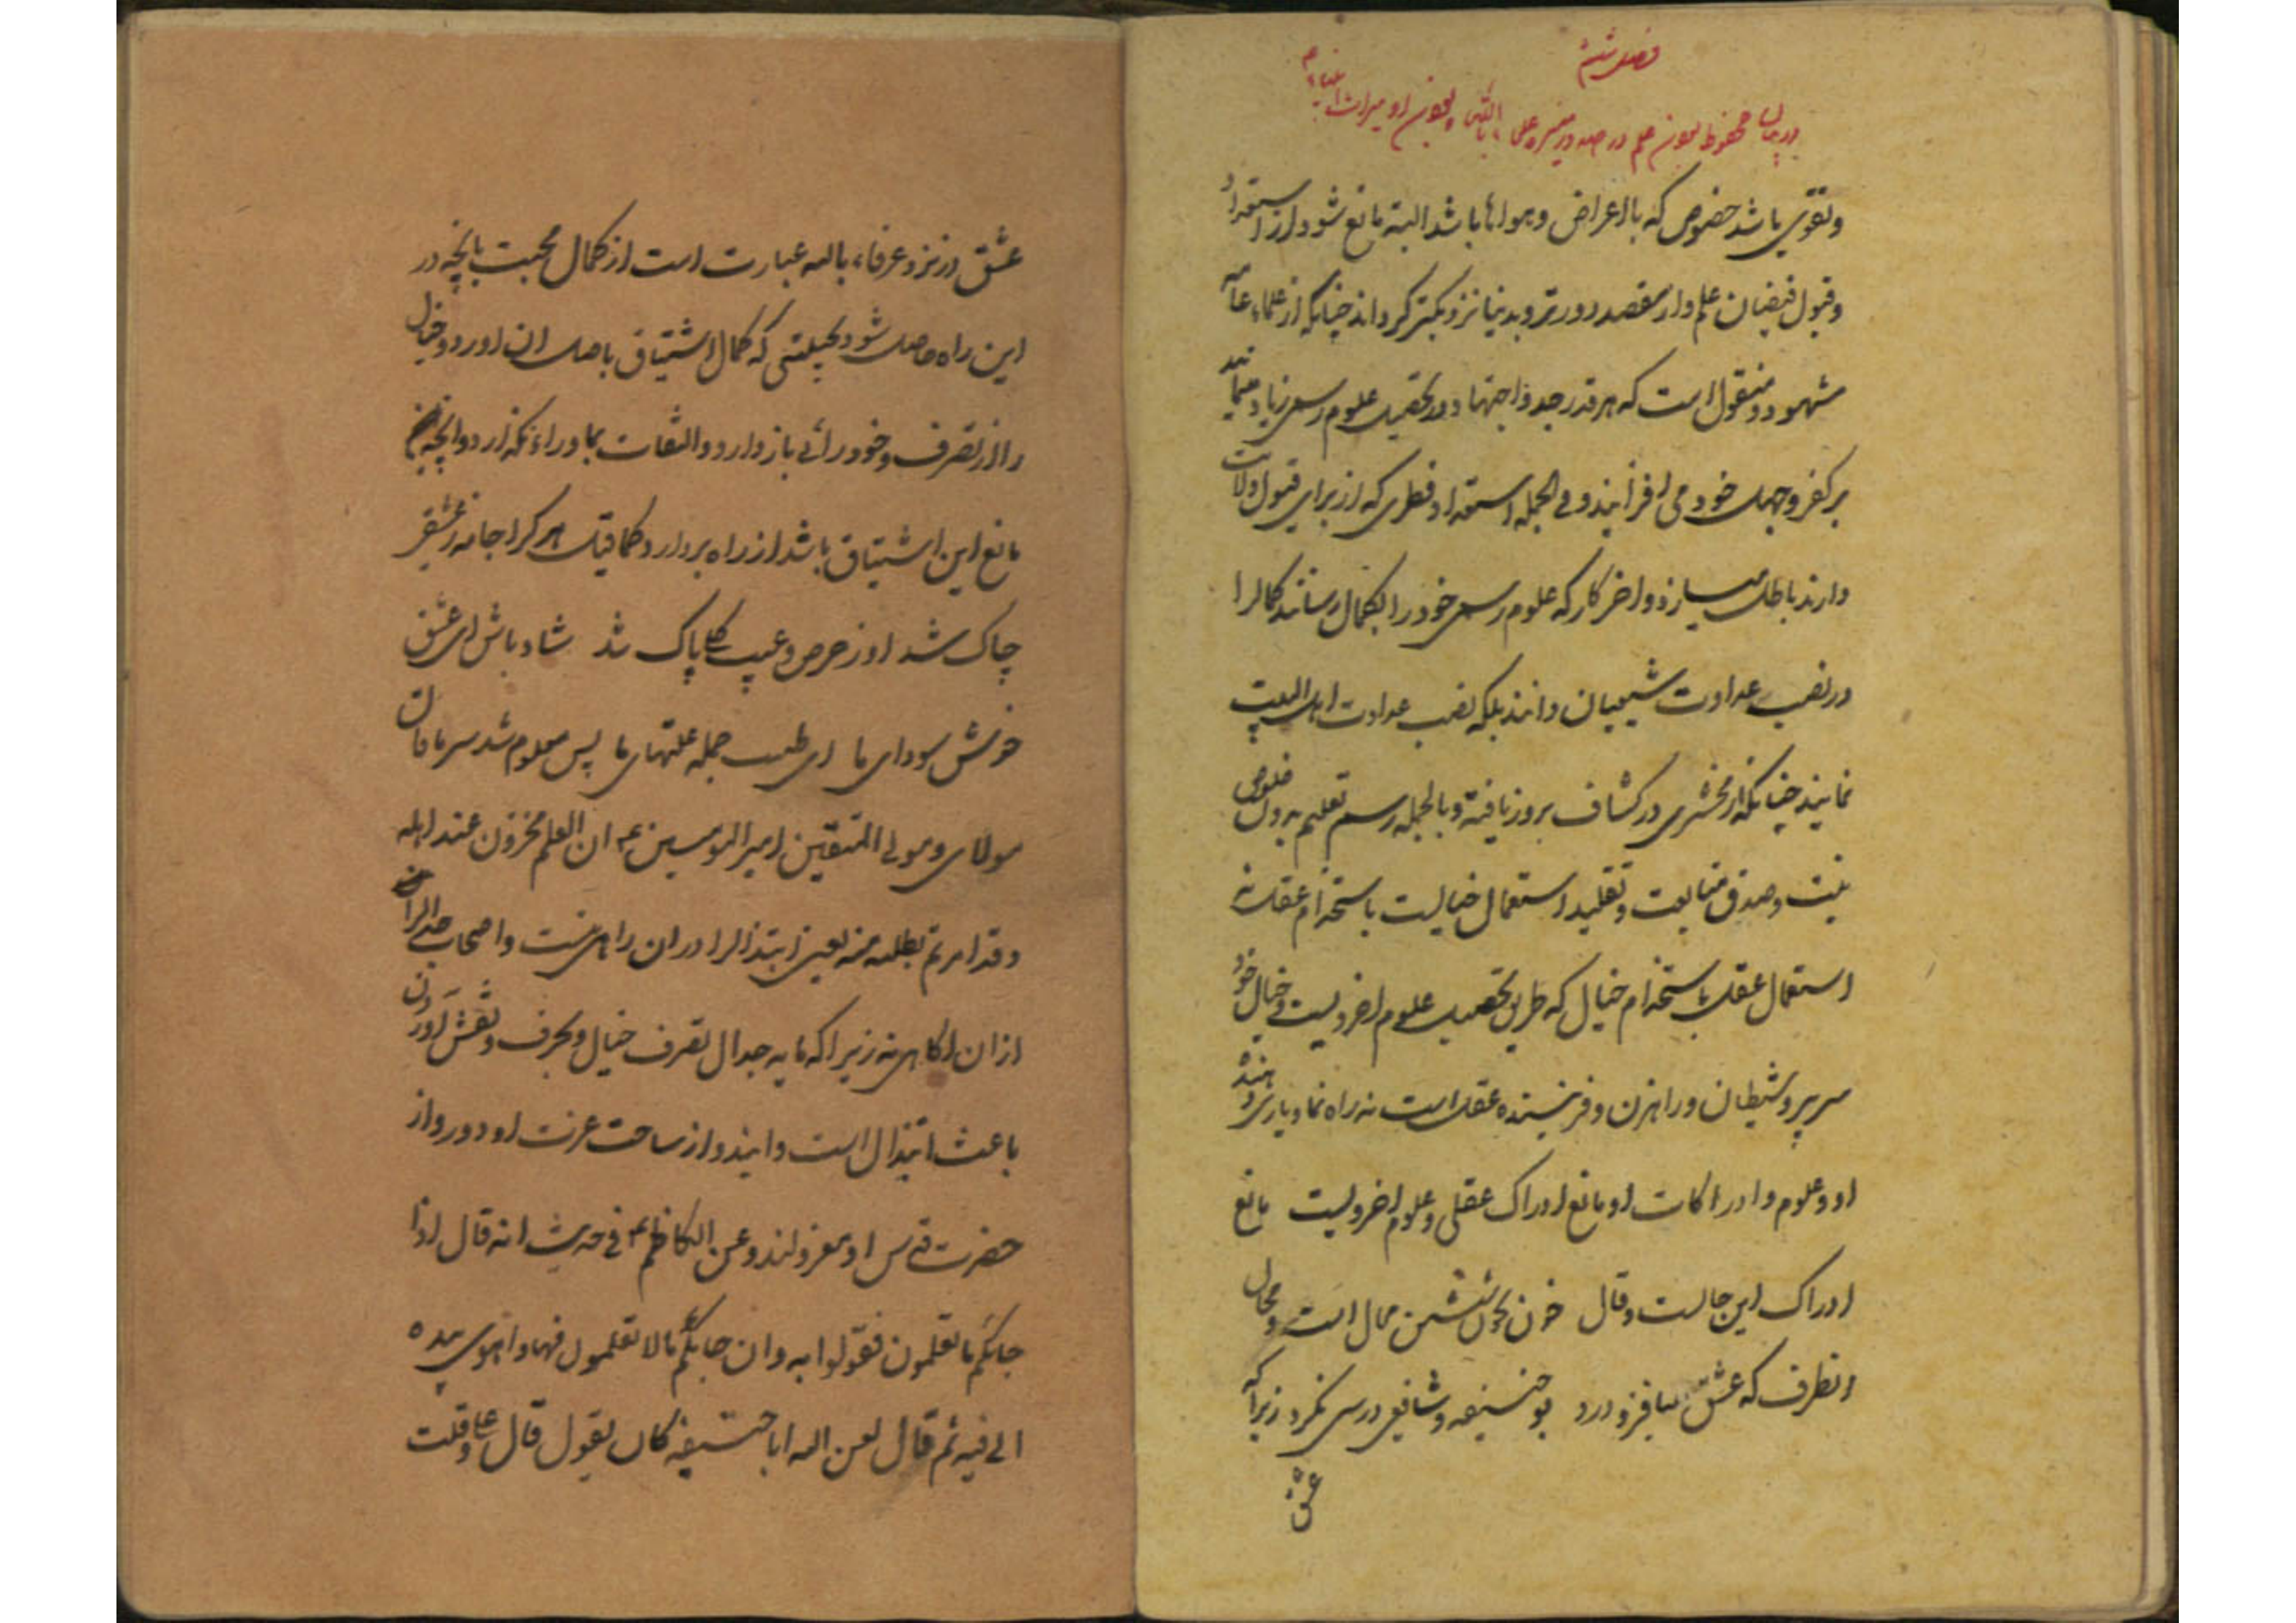 فصل ششم
در بیان محفوظ بودن علم در صدور منیره علماء بالله و بودن او میراث انبیاء ع
وتقوی باشد خصوص که بااعراض و هواها باشد البته مانع شود از استعداد
وقبول فیضان علم واز مقصد دورتر وبدنیا نزدیکتر گرداند چنانکه از علماء عامه
مشهود ومنقول است که هر قدر جد واجتهاد در تحصیل علوم رسمی زیاد مینمایند
بر کفر وجهل خود می افزایند وفی الجمله استعداد فطری که از برای قبول ولایت
دارند باطل میسازد واخر کار که علوم رسمی خود را بکمال رسانند کمالرا
در نصب عداوت شیعیان دانند بلکه نصب عداوت اهل البیت
نمایند چنانکه از زمخشری در کشاف بروز یافته وبالجمله رسم تعلیم بدون خلوص
نیت وصدق متابعت وتقلید استعمال خیالیت باستخدام عقل نه
استعمال عقل باستخدام خیال که طریق تحصیل علوم اخرویست وخیال خود
سر پیرو شیطان وراهزن وفریبنده عقل است نه راه نما ویاری دهنده
او وعلوم وادراکات او مانع ادراک عقلی وعلوم اخرویست مانع
ادراک این حالست وقال خون بخون شستن محال است ومحال
انطرف که عشق میافزود درد بوحنیفه وشافعی درسی نکرد زیرا که
عشق
عشق در نزد عرفاء بالله عبارت است از کمال محبت بانچه در
این راه حاصل شود بحیثیتی که کمال اشتیاق باصل ان اورد وخیال
را از تصرف وخودرائی باز دارد والتفات بماوراء نگذارد وانچه
مانع این اشتیاق باشد از راه بردارد کما قیل هر کرا جامه ز عشقی
چاک شد او ز حرص وعیب کلی پاک شد شاد باش ای عشق
خوش سودای ما ای طبیب جمله علتهای ما پس معلوم شد سر ما قال
مولای ومولی المتقین امیر المومنین ع ان العلم مخزون عند اهله
وقد امرتم بطلبه منه یعنی ابتذالرا در ان راهی نیست واصحاب جدل را
از ان اگاهی نه زیرا که مایه جدال تصرف خیال وبحرف ونقش اوردن
باعث ابتذال است وایند واز ساحت عزت او دور واز
حضرت قدس او معزولند وعن الکاظم ع فی حدیث انه قال اذا
جائکم ما تعلمون فقولوا به وان جائکم ما لا تعلمون فها واهوی بیده
الی فیه ثم قال لعن الله اباحنیفه کان یقول قال علی وقلت